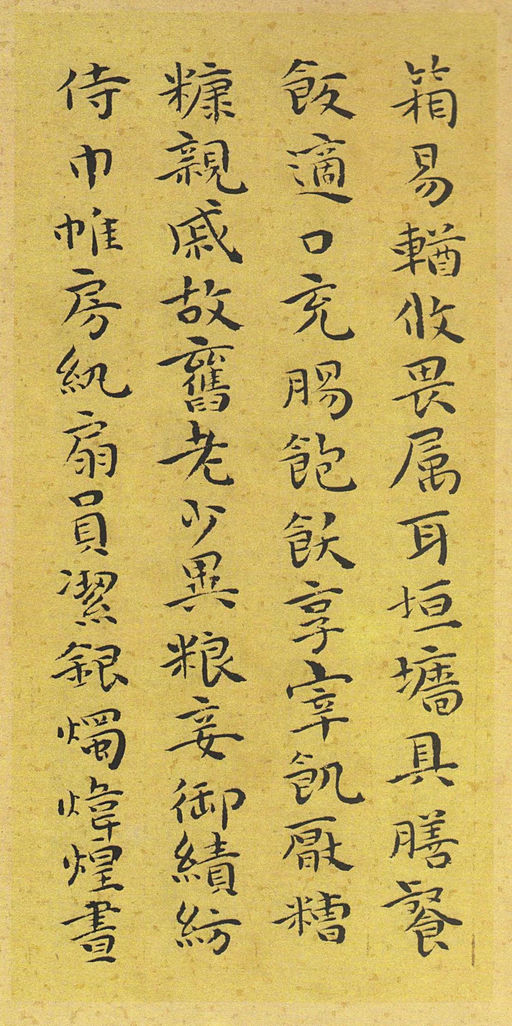 箱易輶攸畏属耳垣墻具膳飡
飯適口充腸飽飫享宰飢厭糟
糠親戚故舊老少異粮妾御績紡
侍巾帷房紈扇員潔銀燭煒煌晝